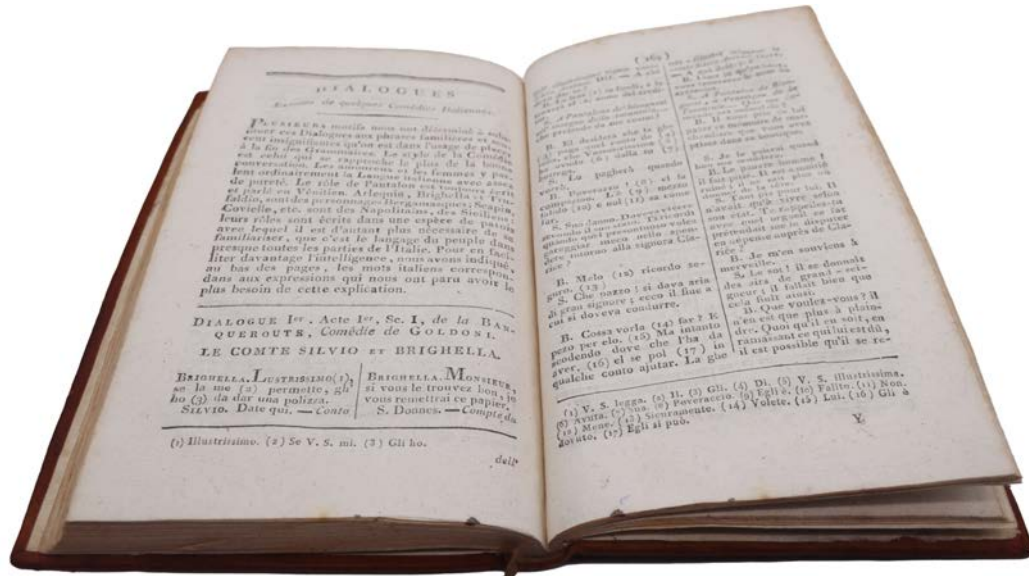 DIALOGUES
Extraits de quelques Comédies Italiennes.
PLUSIEURS motifs nous ont déterminé à subs-
tituer ces Dialogues aux phrases familières et sou-
vent insignifiantes qu'on est dans l'usage de placer
à la fin des Grammaires. Le style de la Comédie
est celui qui se rapproche le plus de la bonne
conversation. Les amoureux et les femmes y par-
lent ordinairement la Langue Italienne avec assez
de pureté. Le rôle de Pantalon est toujours écrit
et parlé en Vénitien. Arlequin, Brighella et Truf-
faldin, sont des personnages Bergamasques; Scapin,
Covielle, etc. sont des Napolitains, des Siciliens;
leurs rôles sont écrits dans une espèce de patois
avec lequel il est d'autant plus nécessaire de se
familiariser, que c'est le langage du peuple dans
presque toutes les parties de l'Italie. Pour en faci-
liter davantage l'intelligence, nous avons indiqué,
au bas des pages, les mots italiens correspon-
dans aux expressions qui nous ont paru avoir le
plus besoin de cette explication.
DIALOGUE Ier. Acte Ier, Sc. I, de la BAN-
QUEROUTE, Comédie de GOLDONI.
LE COMTE SILVIO ET BRIGHELLA.
BRIGHELLA. LUSTRISSIMO (1),
se la me (2) permette, gh
ho (3) da dar una polizza.
SILVIO. Date qui. — Conto
BRIGHELLA. MONSIEUR,
si vous le trouvez bon, je
vous remettrai ce papier.
S. Donnes. — Compte du
(1) Illustrissimo. (2) Se V. S. mi. (3) Gli ho.
dell'
S. La pagherà quando
potrà.
B. Poverazzo! (8) el fa
compassion. L'è (9) mezzo
falido (10) e nol (11) sa come
far.
S. Suo danno. Doveva vivere
secondo il suo stato. Ti ricordi
quando quel presontuoso voleva
gareggiar meco nello spen-
dere intorno alla signora Cla-
rice?
B. Melo (12) ricordo se-
guro. (13)
S. Che pazzo! si dava aria
di gran signore; ecco il fine a
cui si doveva condurre.
B. Cossa vorla (14) far? E
pezo per elo. (15) Ma intanto
scodendo dove che l'ha da
aver, (16) el se pol (17) in
qualche conto ajutar. La ghe
S. Je le paierai quand
bon me semblera.
B. Le pauvre homme!
il fait pitié. Il est à moitié
ruiné; il ne sait plus où
donner de la tête.
S. Tant pis pour lui. Il
n'avait qu'à vivre selon
son état. Te rappelles-tu
avec quel orgueil ce fat
prétendait me le disputer
en dépense auprès de Cla-
rice?
B. Je m'en souviens à
merveille.
S. Le sot! il se donnait
des airs de grand-sei-
gneur; il fallait bien que
cela finît ainsi.
B. Que voulez-vous? Il
n'en est que plus à plain-
dre. Quoi qu'il en soit, en
ramassant ce qui lui est dû,
il est possible qu'il se re-
(1) V. S. legga. (2) Il. (3) Gli. (4) Di. (5) V. S. illustrissima.
(6) Avuta. (7) Sua. (8) Poveraccio. (9) Egli è. (10) Fallito. (11) Non.
(12) Mene. (13) Sicuramente. (14) Volete. (15) Lui. (16) Gli è
dovuto. (17) Egli si può.
Y